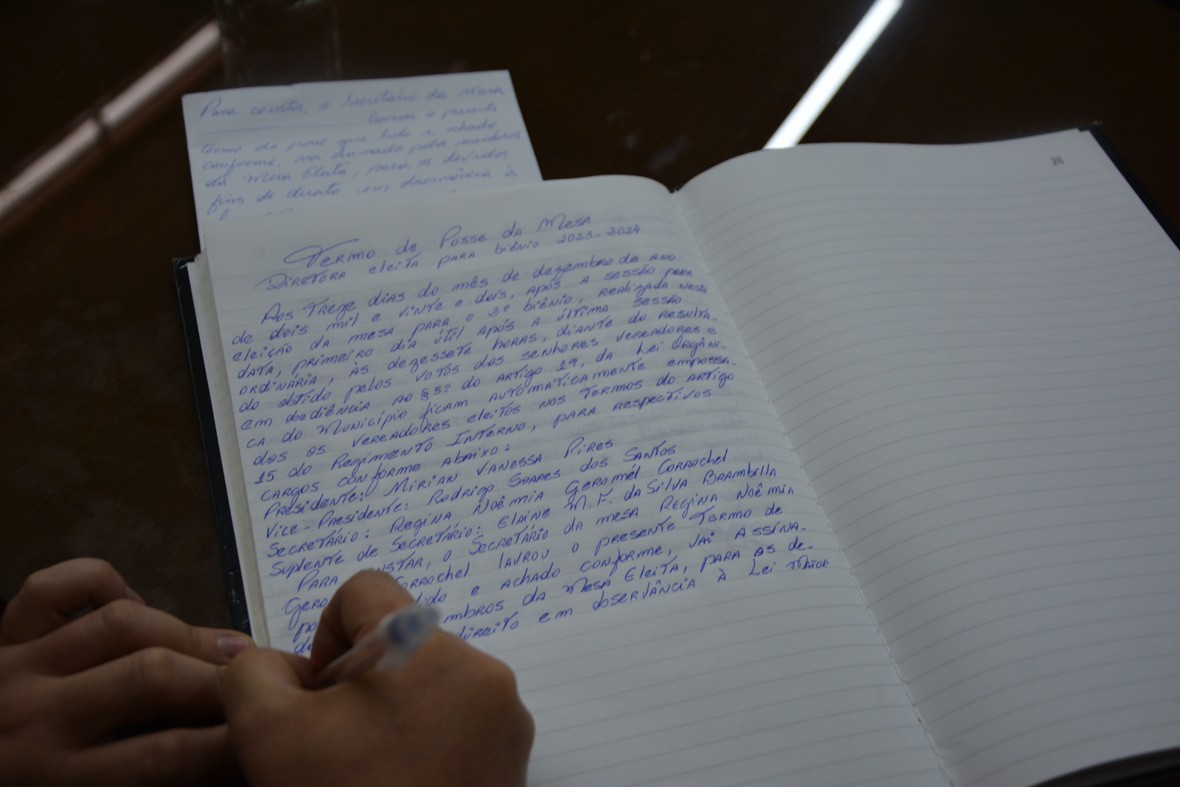 Para constar, o Secretário da Mesa
lavrou o presente
termo de posse que lido e achado
conforme, vai assinado pelos membros
da Mesa Eleita, para os devidos
fins de direito em observância à
Termo de Posse da Mesa
Diretora eleita para biênio 2023-2024
Aos treze dias do mês de dezembro do ano
de dois mil e vinte e dois, após a sessão para
eleição da mesa para o 2º biênio, realizada nesta
data, primeiro dia útil após a última sessão
ordinária, às dezessete horas, diante do resulta-
do obtido pelos votos dos senhores vereadores e
em obediência ao § 5º do artigo 19, da Lei Orgâni-
ca do Município ficam automaticamente empossa-
dos os vereadores eleitos nos termos do artigo
15 do Regimento Interno, para respectivos
cargos conforme abaixo:
Presidente: Mirian Vanessa Pires
Vice-Presidente: Rodrigo Soares dos Santos
Secretário: Regina Noêmia Geromél Corrochel
Suplente de Secretário: Elaine M. F. da Silva Brambilla
Para constar, o Secretário da mesa Regina Noêmia
Gero Corrochel lavrou o presente Termo de
lido e achado conforme, vai assina-
po mbros da Mesa Eleita, para as de-
direito em observância à Lei Maior
26